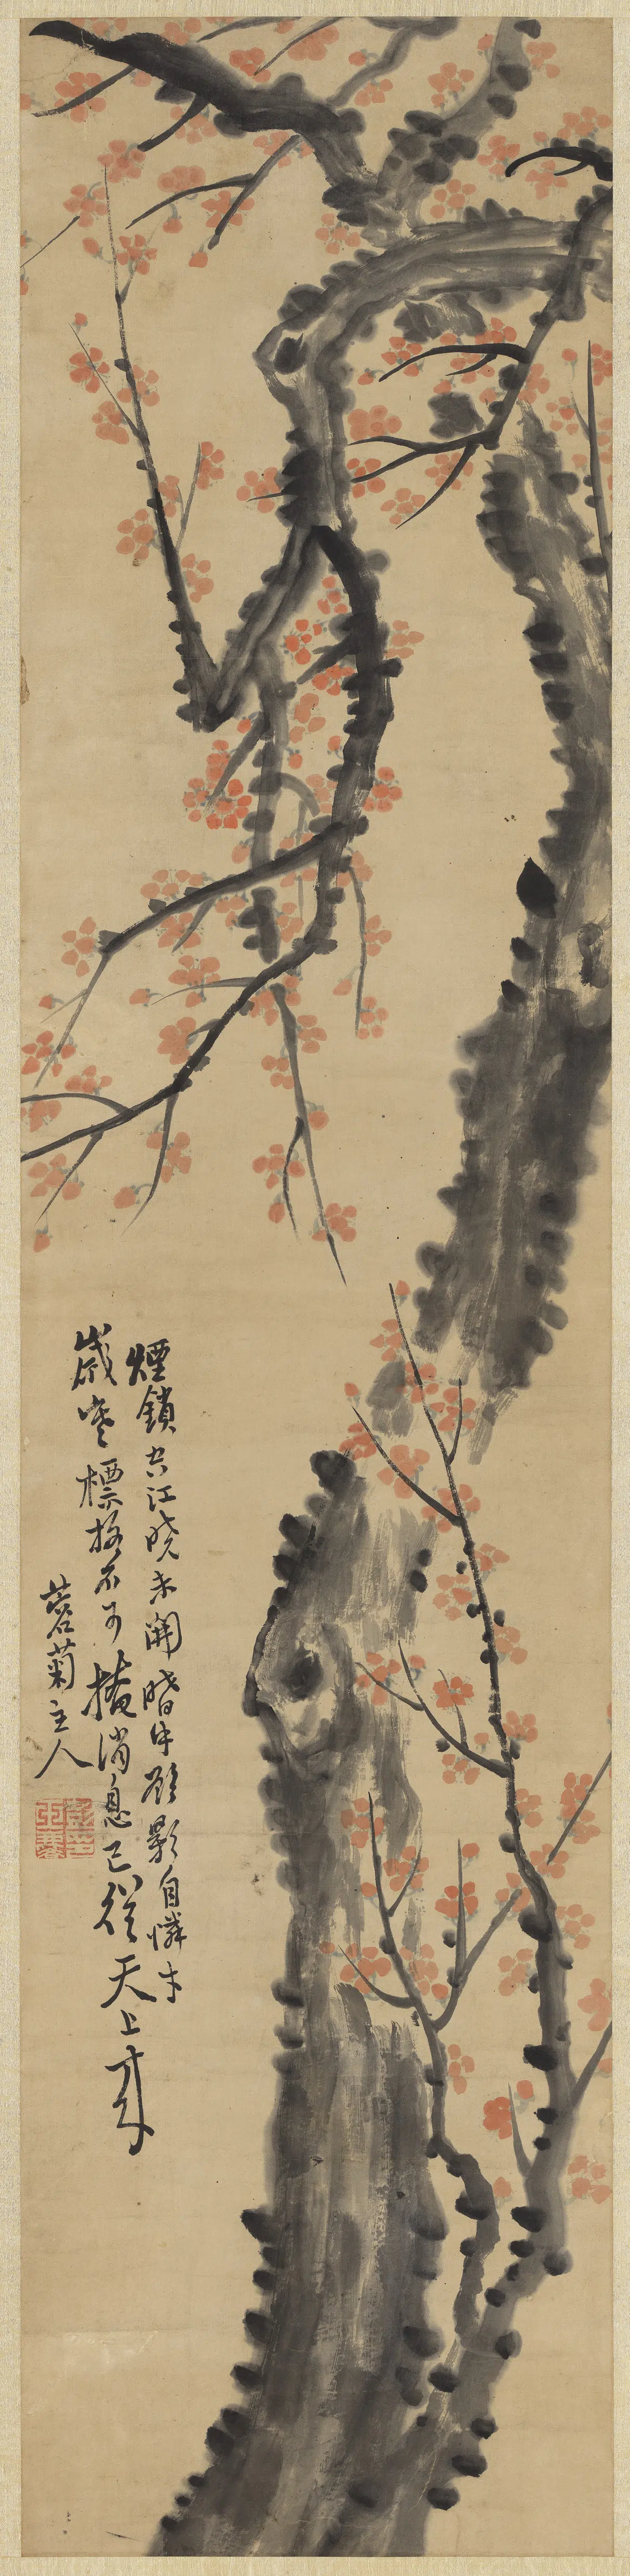 煙鎖空江曉未開暗中顧影自憐才
歲寒標格不可掩消息已從天上來
蒼菊主人